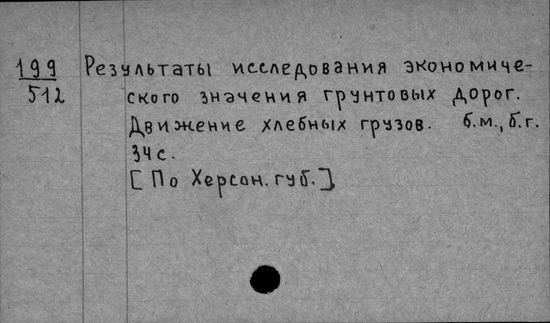 199 Результаты исследования экономиче-
512 ского значения грунтовых дорог.
Движение хлебных грузов. б.м., б.г.
34 с.
[По Херсон. губ.]